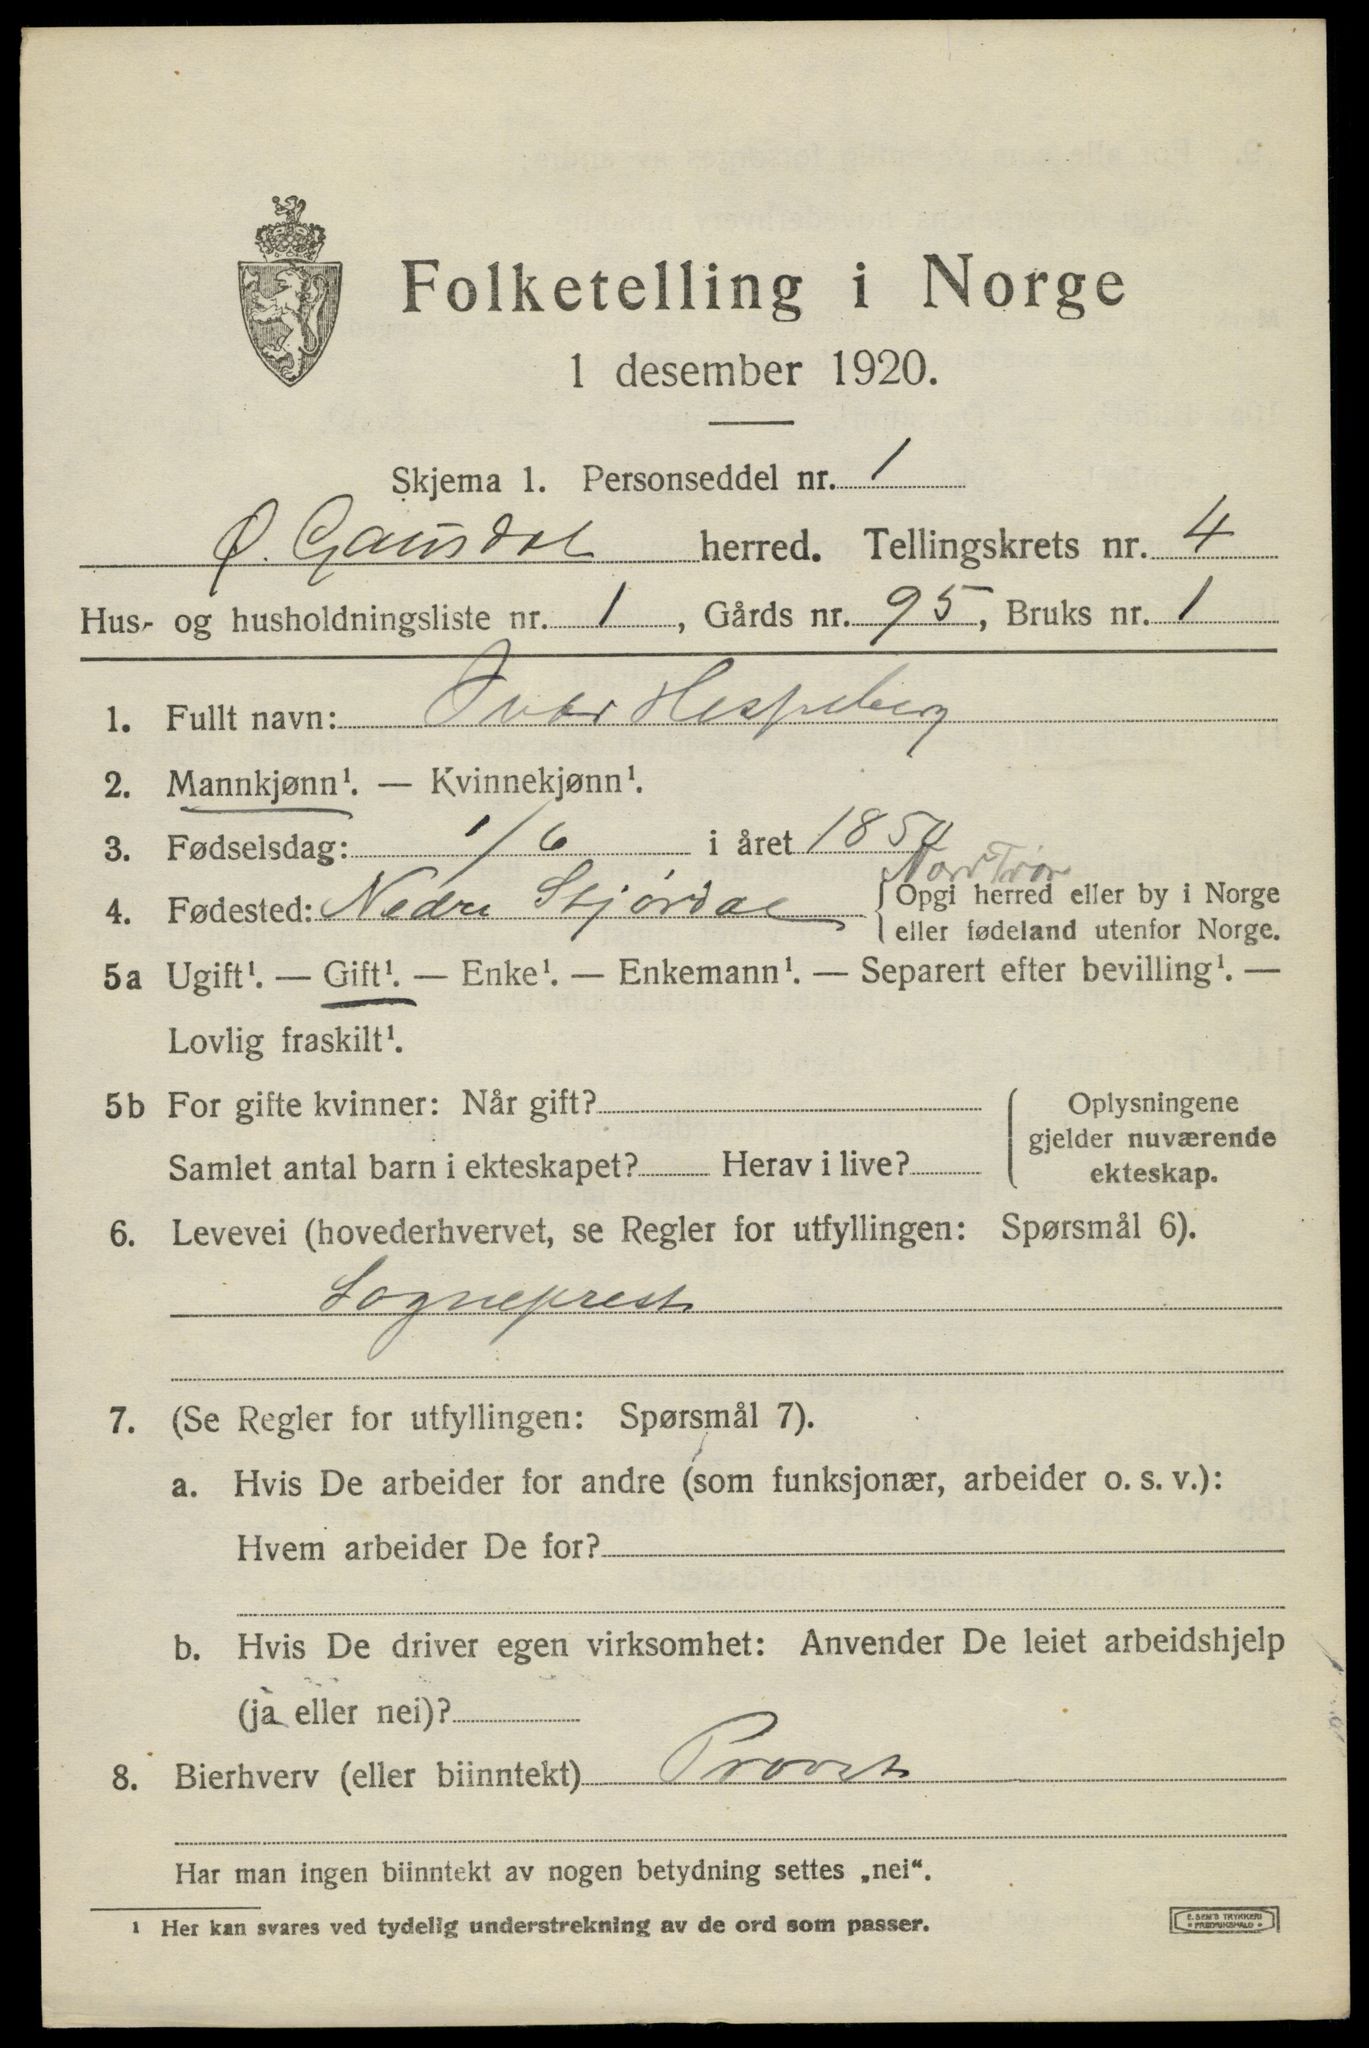 Folketelling i Norge
1 desember 1920.
Skjema 1. Personseddel nr. 1
Ø. Gausdal herred. Tellingskrets nr. 4
Hus- og husholdningsliste nr. 1, Gårds nr. 95, Bruks nr. 1
1. Fullt navn: Ivar Hesselberg
2. Mannkjønn¹. — Kvinnekjønn¹.
3. Fødselsdag: 1/6 i året 1850
Nord Trøn
4. Fødested: Nedre Stjørdal { Opgi herred eller by i Norge
eller fødeland utenfor Norge.
5a Ugift¹. — Gift¹. — Enke¹. — Enkemann¹. — Separert efter bevilling¹. —
Lovlig fraskilt¹.
5b For gifte kvinner: Når gift?
Samlet antal barn i ekteskapet? Herav i live?
Oplysningene
gjelder nuværende
ekteskap.
6. Levevei (hovederhvervet, se Regler for utfyllingen: Spørsmål 6).
Sogneprest
7. (Se Regler for utfyllingen: Spørsmål 7).
a. Hvis De arbeider for andre (som funksjonær, arbeider o. s. v.):
Hvem arbeider De for?
b. Hvis De driver egen virksomhet: Anvender De leiet arbeidshjelp
(ja eller nei)?
8. Bierhverv (eller biinntekt) Provst
Har man ingen biinntekt av nogen betydning settes „nei“.
¹ Her kan svares ved tydelig understrekning av de ord som passer.
E. SEM'S TRYKKERI
FREDRIKSHALD